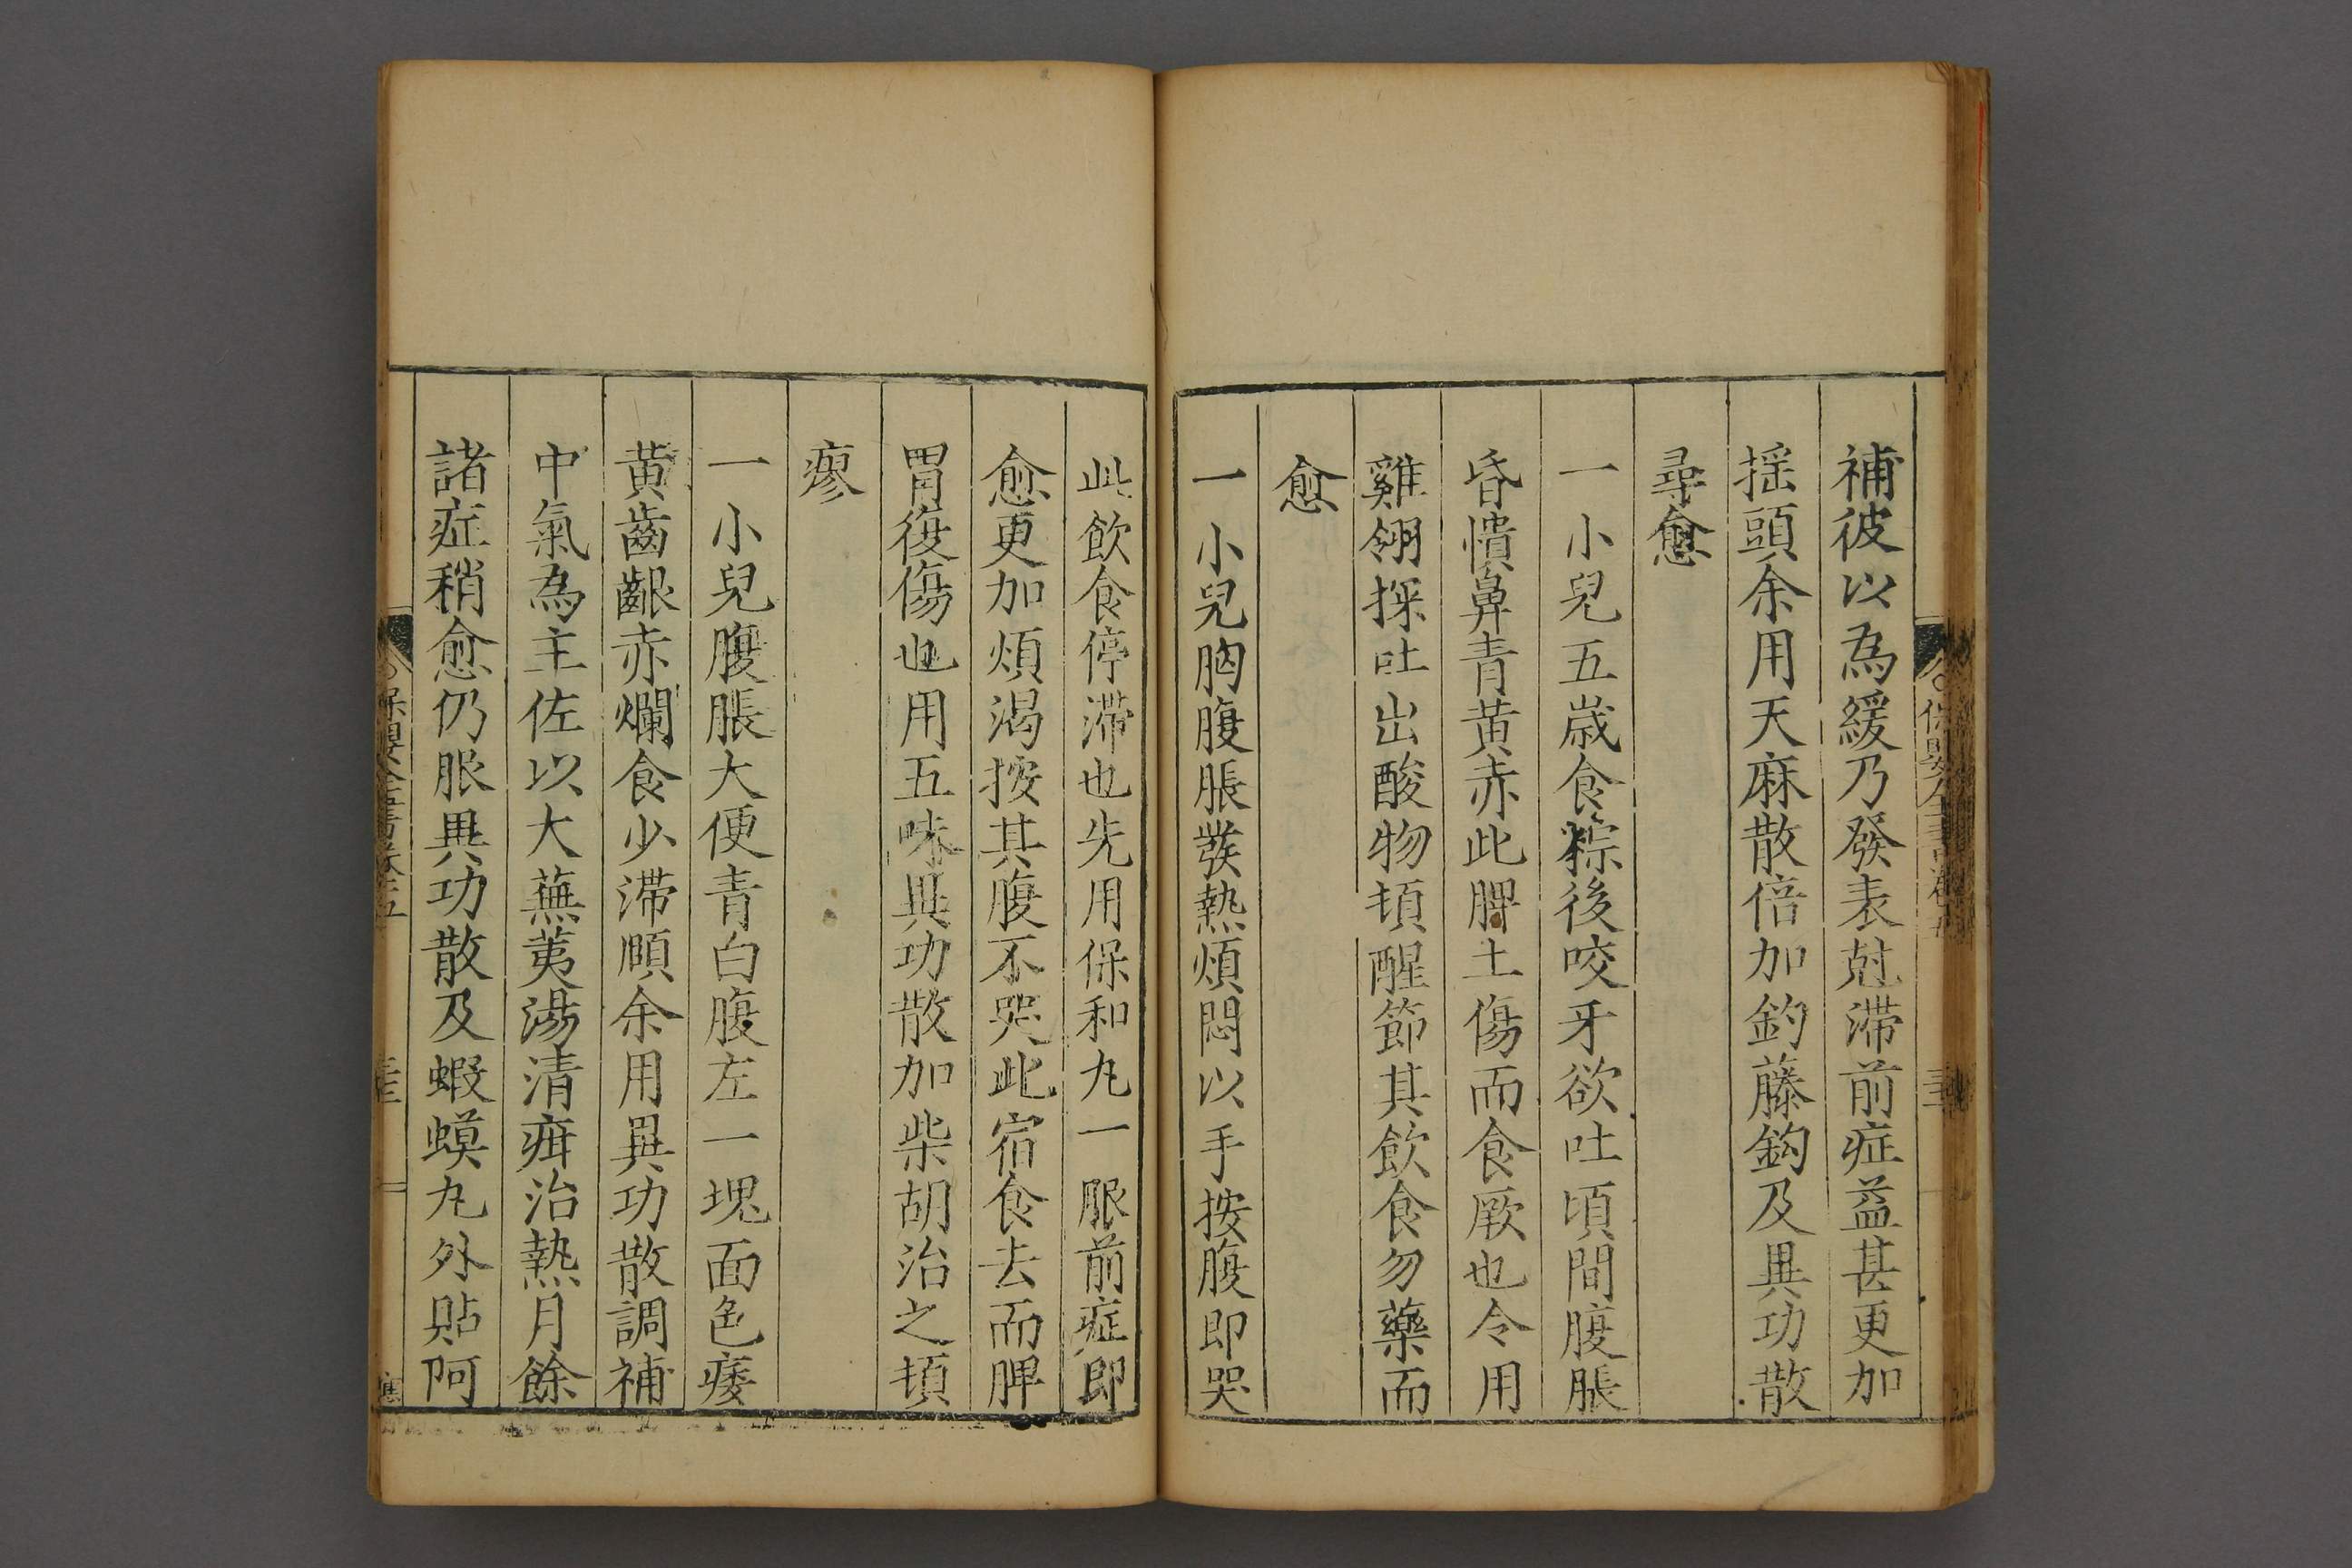 補彼以為緩乃發表尅滯前症益甚更加
揺頭余用天麻散倍加釣藤鈎及異功散
尋愈
一小兒五歳食粽後咬牙欲吐頃間腹脹
昏憒鼻青黄赤此脾土傷而食厥也令用
雞翎探吐出酸物頓醒節其飲食勿藥而
愈
一小兒胸腹脹發熱煩悶以手按腹即哭
此飲食停滯也先用保和丸一服前症即
愈更加煩渴按其腹不哭此宿食去而脾
胃復傷也用五味異功散加柴胡治之頓
瘳
一小兒腹脹大便青白腹左一塊面色痿
黄齒齦赤爛食少滯頤余用異功散調補
中氣為主佐以大蕪荑湯清疳治熱月餘
諸症稍愈仍服異功散及蝦蟆丸外貼阿
保嬰全書卷五